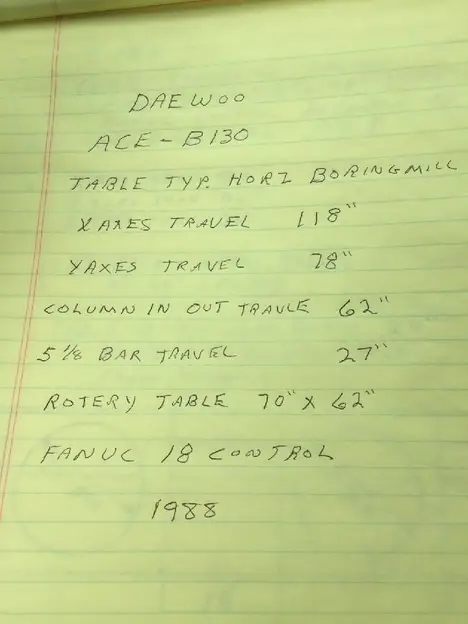 DAEWOO
ACE-B130
TABLE TYP. HORZ BORINGMILL
XAXES TRAVEL 118"
YAXES TRAVEL 78"
COLUMN IN OUT TRAVLE 62"
5 1/8 BAR TRAVEL 27"
ROTERY TABLE 70" X 62"
FANUC 18 CONTROL
1988